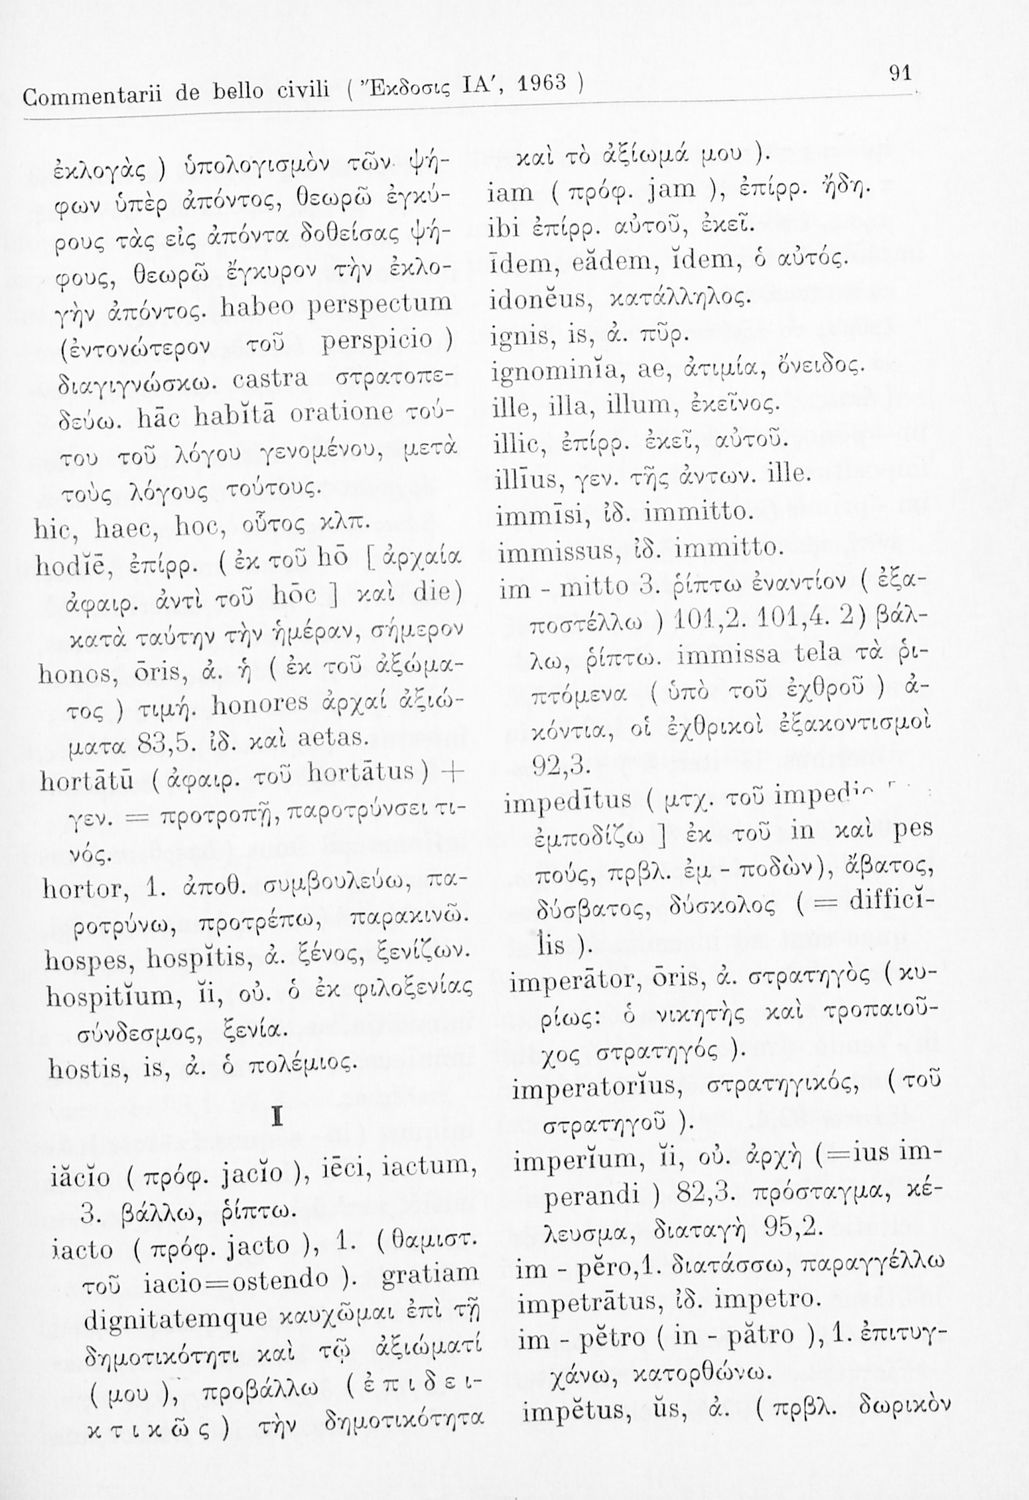 Commentarii de bello civili ( Ἔκδοσις ΙΑʹ, 1963 )
91
ἐκλογὰς ) ὑπολογισμὸν τῶν ψή-
φων ὑπὲρ ἀπόντος, θεωρῶ ἐγκύ-
ρους τὰς εἰς ἀπόντα δοθείσας ψή-
φους, θεωρῶ ἔγκυρον τὴν ἐκλο-
γὴν ἀπόντος. habeo perspectum
(ἐντονώτερον τοῦ perspicio )
διαγιγνώσκω. castra στρατοπε-
δεύω. hāc habĭtā oratione τού-
του τοῦ λόγου γενομένου, μετὰ
τοὺς λόγους τούτους.
hic, haec, hoc, οὗτος κλπ.
hodĭē, ἐπίρρ. ( ἐκ τοῦ hō [ ἀρχαία
ἀφαιρ. ἀντὶ τοῦ hōc ] καὶ die)
κατὰ ταύτην τὴν ἡμέραν, σήμερον
honos, ōris, ἀ. ἡ ( ἐκ τοῦ ἀξώμα-
τος ) τιμή. honores ἀρχαί ἀξιώ-
ματα 83,5. ἰδ. καὶ aetas.
hortātū ( ἀφαιρ. τοῦ hortātus ) +
γεν. = προτροπῇ, παροτρύνσει τι-
νός.
hortor, 1. ἀποθ. συμβουλεύω, πα-
ροτρύνω, προτρέπω, παρακινῶ.
hospes, hospĭtis, ἀ. ξένος, ξενίζων.
hospitĭum, ĭi, οὐ. ὁ ἐκ φιλοξενίας
σύνδεσμος, ξενία.
hostis, is, ἀ. ὁ πολέμιος.
I
iăcĭo ( πρόφ. jacĭo ), iēci, iactum,
3. βάλλω, ῥίπτω.
iacto ( πρόφ. jacto ), 1. ( θαμιστ.
τοῦ iacio=ostendo ). gratiam
dignitatemque καυχῶμαι ἐπὶ τῇ
δημοτικότητι καὶ τῷ ἀξιώματί
( μου ), προβάλλω ( ἐ π ι δ ε ι-
κ τ ι κ ῶ ς ) τὴν δημοτικότητα
καὶ τὸ ἀξίωμά μου ).
iam ( πρόφ. jam ), ἐπίρρ. ἤδη.
ibi ἐπίρρ. αὐτοῦ, ἐκεῖ.
īdem, eădem, ĭdem, ὁ αὐτός.
idonĕus, κατάλληλος.
ignis, is, ἀ. πῦρ.
ignominĭa, ae, ἀτιμία, ὄνειδος.
ille, illa, illum, ἐκεῖνος.
illic, ἐπίρρ. ἐκεῖ, αὐτοῦ.
illīus, γεν. τῆς ἀντων. ille.
immīsi, ἰδ. immitto.
immissus, ἰδ. immitto.
im - mitto 3. ῥίπτω ἐναντίον ( ἐξα-
ποστέλλω ) 101,2. 101,4. 2) βάλ-
λω, ῥίπτω. immissa tela τὰ ῥι-
πτόμενα ( ὑπὸ τοῦ ἐχθροῦ ) ἀ-
κόντια, οἱ ἐχθρικοὶ ἐξακοντισμοὶ
92,3.
impedītus ( μτχ. τοῦ
ἐμποδίζω ] ἐκ τοῦ in καὶ pes
πούς, πρβλ. ἐμ - ποδὼν), ἄβατος,
δύσβατος, δύσκολος ( = difficĭ-
lis ).
imperātor, ōris, ἀ. στρατηγὸς ( κυ-
ρίως: ὁ νικητὴς καὶ τροπαιοῦ-
χος στρατηγός ).
imperatorĭus, στρατηγικός, ( τοῦ
στρατηγοῦ ).
imperĭum, ĭi, οὐ. ἀρχὴ (=ius im-
perandi ) 82,3. πρόσταγμα, κέ-
λευσμα, διαταγὴ 95,2.
im - pĕro,1. διατάσσω, παραγγέλλω
impetrātus, ἰδ. impetro.
im - pĕtro ( in - pătro ), 1. ἐπιτυγ-
χάνω, κατορθώνω.
impĕtus, ŭs, ἀ. ( πρβλ. δωρικὸν